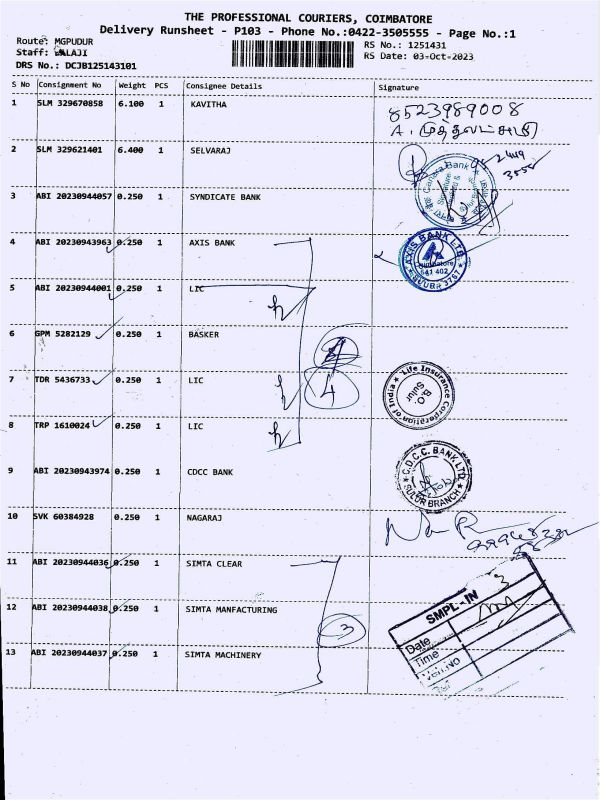 THE PROFESSIONAL COURIERS, COIMBATORE
Delivery Runsheet - P103 - Phone No.:0422-3505555 - Page No.:1
Route: MGPUDUR
RS No.: 1251431
Staff: BALAJI
RS Date: 03-Oct-2023
DRS No.: DCJB125143101
S No Consignment No Weight PCS Consignee Details Signature
1 SLM 329670858 6.100 1 KAVITHA
8523989008
2 SLM 329621401 6.400 1 SELVARAJ
Canara Bank
3 ABI 20230944057 0.250 1 SYNDICATE BANK
4 ABI 20230943963 0.250 1 AXIS BANK
AXIS BANK LTD.
Coimbatore
641 402
5 ABI 20230944001 0.250 1 LIC
6 GPM 5282129 0.250 1 BASKER
4
7 TDR 5436733 0.250 1 LIC
Life Insurance Corporation of India
B.O.
Sulur
8 TRP 1610024 0.250 1 LIC
9 ABI 20230943974 0.250 1 CDCC BANK
C.D.C.C. BANK LTD
SULUR BRANCH
10 SVK 60384928 0.250 1 NAGARAJ
11 ABI 20230944036 0.250 1 SIMTA CLEAR
SMPL-IN
12 ABI 20230944038 0.250 1 SIMTA MANFACTURING
3
Date
Time
13 ABI 20230944037 0.250 1 SIMTA MACHINERY